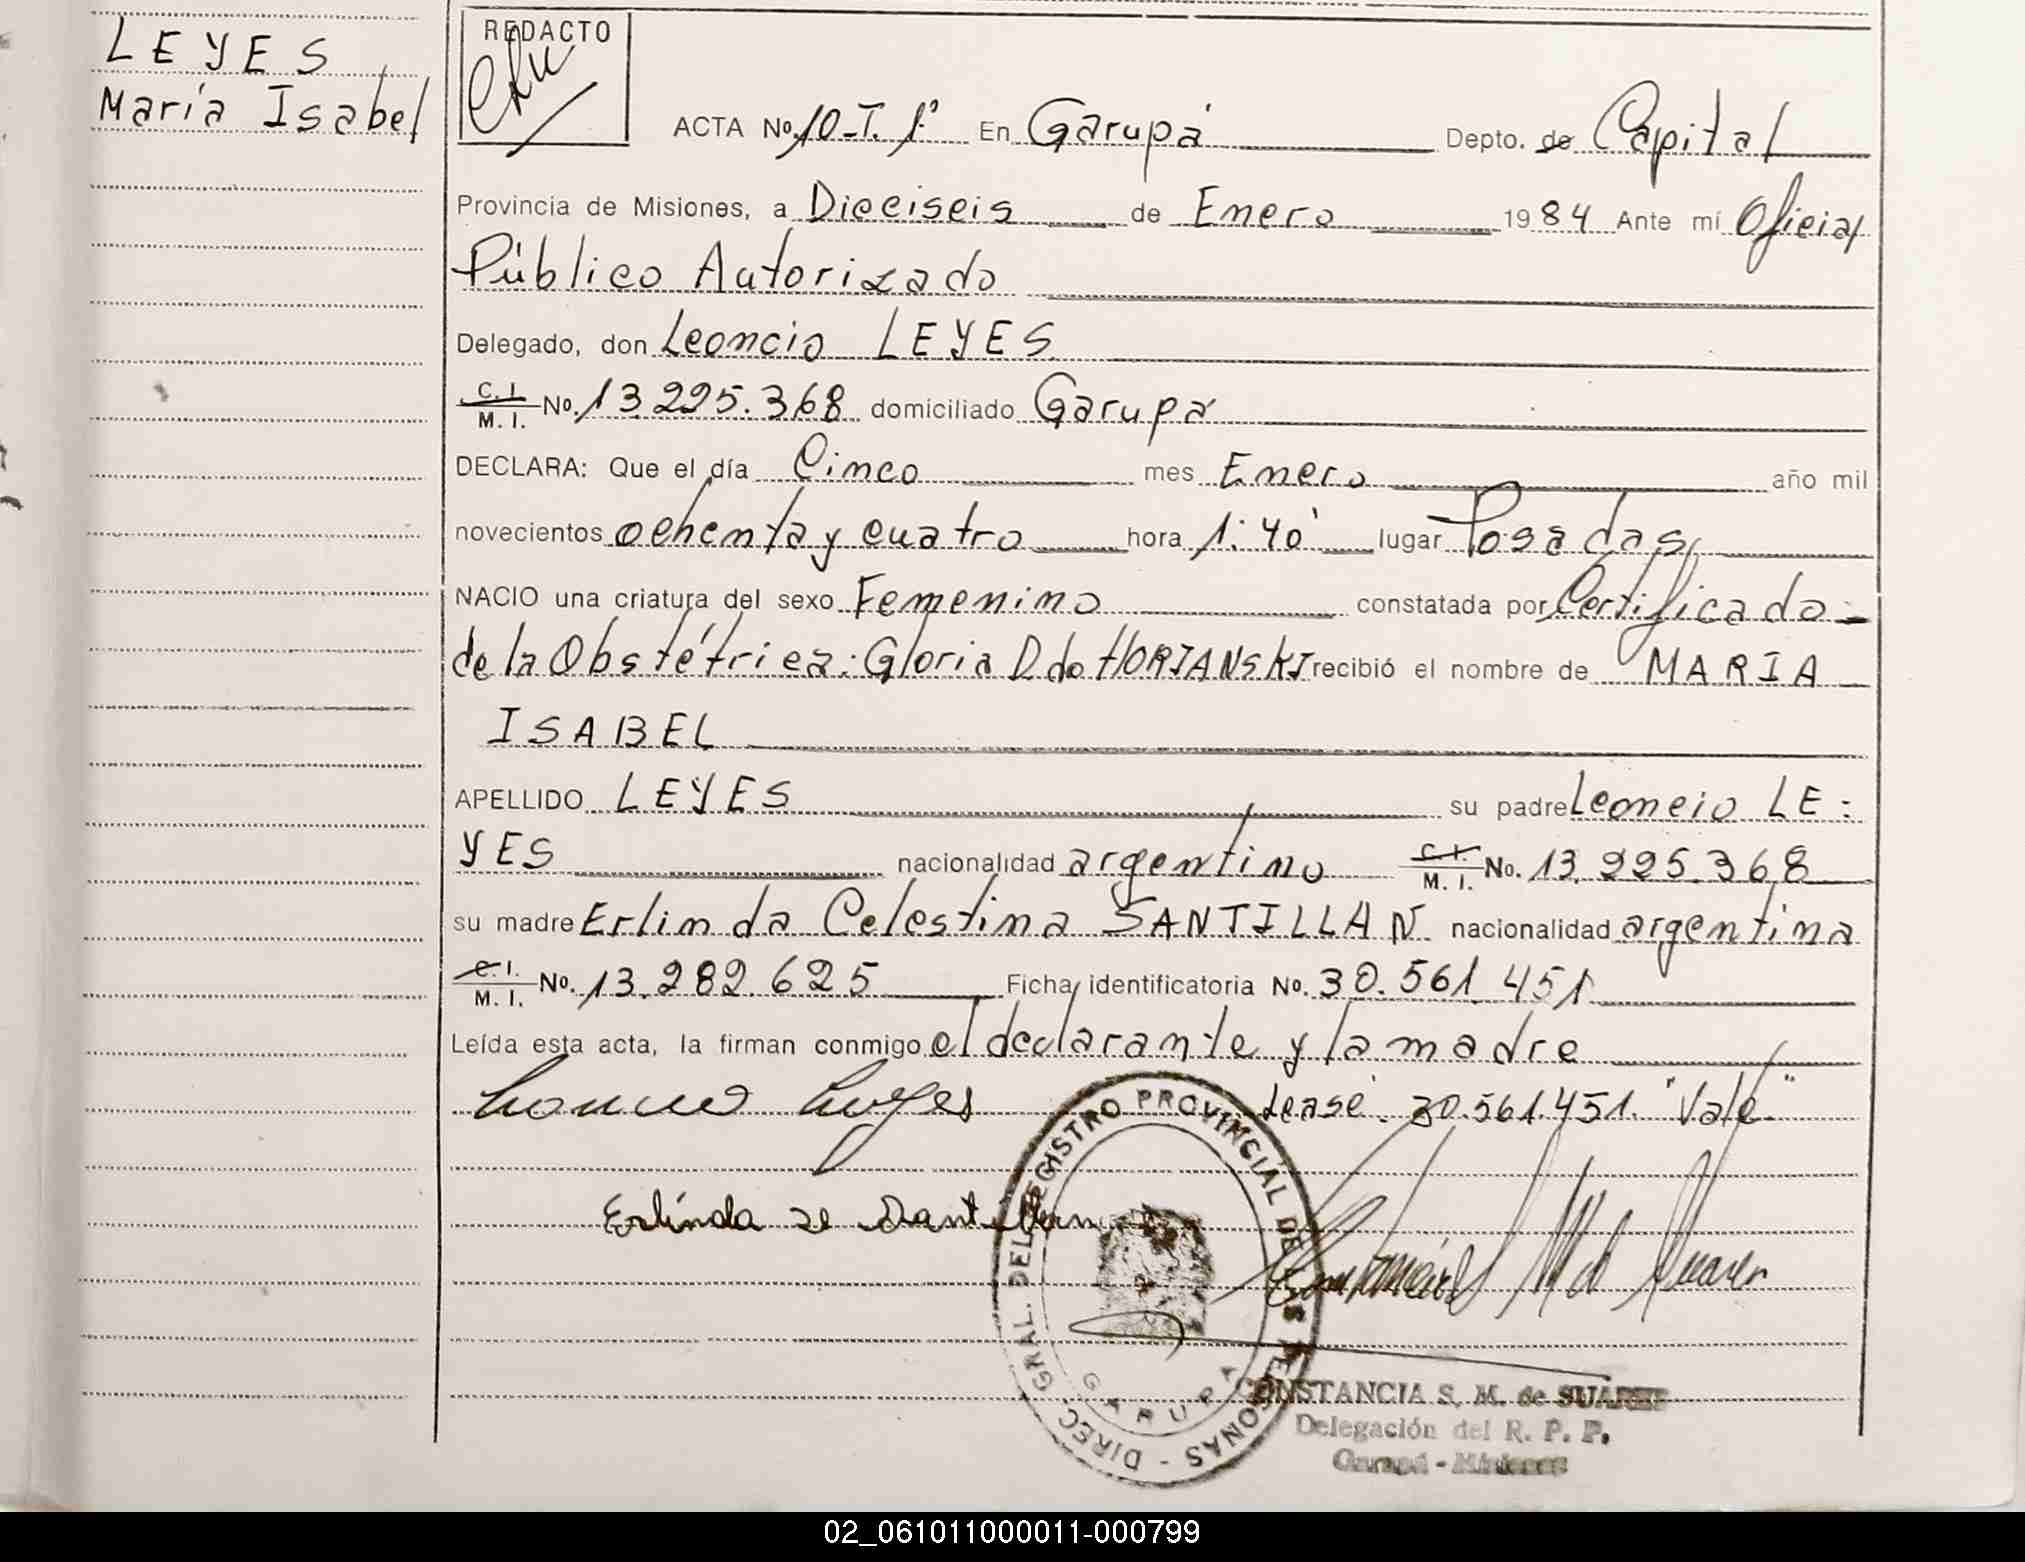 LEYES
María Isabel
REDACTO
ACTA No. 10-T. 1º En Garupá Depto. de Capital
Provincia de Misiones, a Dieciseis de Enero 1984 Ante mí Oficial
Público Autorizado
Delegado, don Leoncio LEYES
C. I. / M. I. No. 13.225.368 domiciliado Garupá
DECLARA: Que el día Cinco mes Enero año mil
novecientos ochenta y cuatro hora 1:40' lugar Posadas
NACIO una criatura del sexo Femenino constatada por Certificado
de la Obstétriez: Gloria D. de HORIANSKI recibió el nombre de MARIA
ISABEL
APELLIDO LEYES su padre Leoncio LE=
YES nacionalidad argentino C. I. / M. I. No. 13.225.368
su madre Erlinda Celestina SANTILLAN nacionalidad argentina
C. I. / M. I. No. 13.282.625 Ficha identificatoria No. 30.561.451
Leída esta acta, la firman conmigo el declarante y la madre
Lease: 30.561.451. "Vale"
Erlinda Santillan
DIREC. GRAL. DEL REGISTRO PROVINCIAL DE LAS PERSONAS - GARUPA
CONSTANCIA S. M. de SUAREZ
Delegación del R. P. P.
Garupá - Misiones
02_061011000011-000799